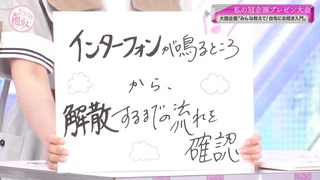 私の冠企画プレゼン大会
大園企画「みんな教えて！自宅にお招き入門」
インターフォンが鳴るところ
から、
解散するまでの流れを
確認